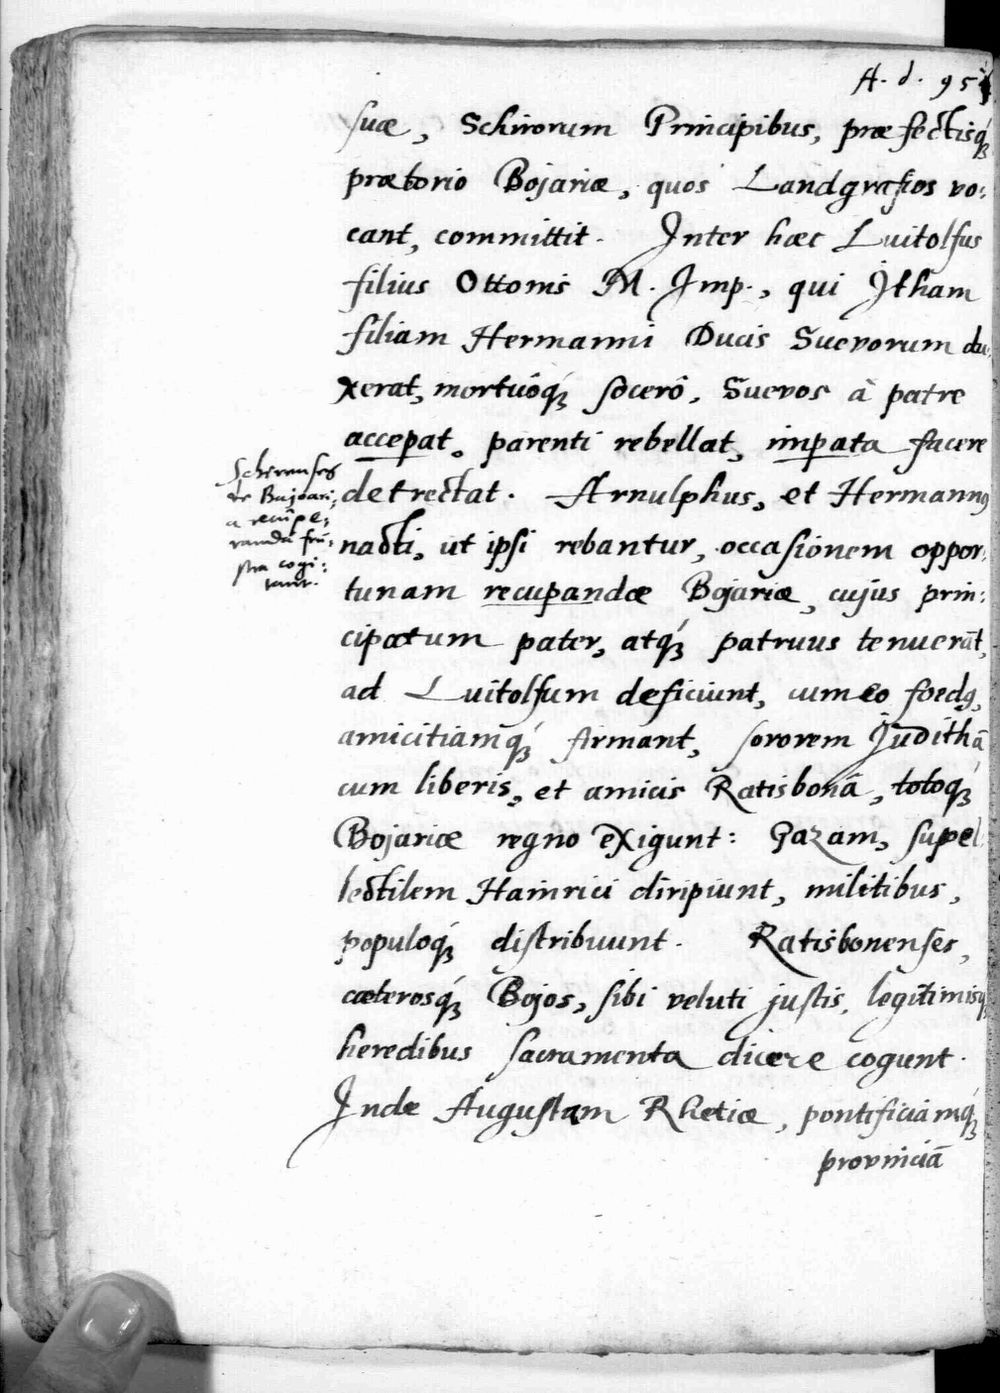 A. d. 95
suæ, Schirorum Principibus, præfectisq́₃
prætorio Bojariæ, quos Landgrafios vo:
cant, committit. Inter hæc Luitolfus
filius Ottonis M. Imp., qui Jtham
filiam Hermanni Ducis Suevorum du:
xerat, mortuôq́₃ socerô, Suevos à patre
accepat. parenti rebellat, impata facere
detrectat. Arnulphus, et Hermannꝯ
nacti, ut ipsi rebantur, occasionem oppor:
tunam recupandæ Bojariæ, cujus prin:
cipatum pater, atq́₃ patruus tenuerāt,
ad Luitolfum deficiunt, cum eo foedꝯ,
amicitiamq́₃ firmant, sororem Judithā
cum liberis, et amicis Ratisbonā, totoq́₃
Bojariæ regno exigunt: Gazam, supel:
lectilem Hainrici diripiunt, militibus,
populoq́₃ distribuunt. Ratisbonenses,
cæterosq́₃ Bojos, sibi veluti justis, legitimisq́₃
heredibus sacramenta dicere cogunt.
Inde Augustam Rhetiæ, pontificiamq́₃
provinciā
Schirenses
de Bajoari:
a recupe:
randa frū:
stra cogi:
tant.